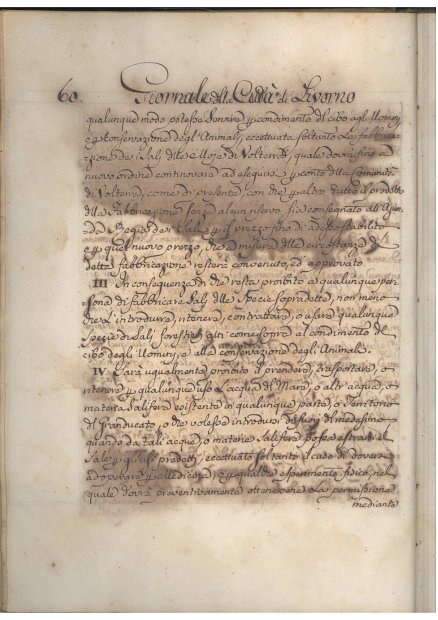 60. Giornale della Città di Livorno
qualunque modo potesse servire p condimento di cibo agli Uomini,
e p conservazione degl'Animali, eccettuata soltanto la fabbrica-
zione de' Sali delle Moje di Volterra, quale dovrà fino a
nuovo ordine continovare ad eseguirsi p conto della Comunità
di Volterra, come di presente, con che p altro tutto il prodotto
della Fabbricazione senza alcun riservo sia consegnato all'Azien-
da Regia del Sale p il prezzo fino ad ora stabilito
e p quel nuovo prezzo, che a misura delle circostanze di
detta fabbricazione resterà convenuto, ed approvato.
III In conseguenza di che resta proibito a qualunque per-
sona di fabbricare Sali della specie sopradetta, non meno
che d'introdurre, ritenere, contrattare, o usare qualunque
specie di Sali forestieri atti come sopra al condimento del
cibo degli Uomini, e alla conservazione degli Animali.
IV. Sarà ugualmente proibito il prendere, trasportare, o
ritenere p qualunque uso l'acqua del Mare, o altr'acque, o
materie salifere esistenti in qualunque parte, o Territorio
del Granducato, o che volesse introdursi da fuori del medesimo
quando da tali acque, o materie salifere possa estrarsi il
Sale p gl'usi predetti, eccettuato soltanto il caso di dovere
adoperarsi p Medicina, e p qualche esperimento fisico, nel
quale dovrà preventivamente ottenersene la permissione
mediante